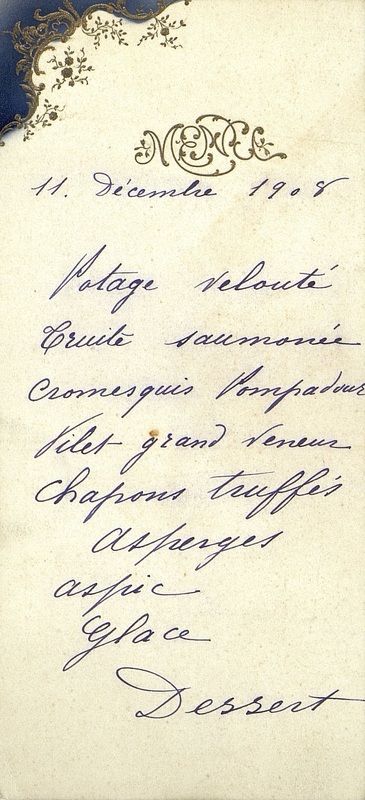 MENU
11. Décembre 1908
Potage velouté
Truite saumonée
Cromesquis Pompadour
Filet grand Veneur
Chapons truffés
Asperges
aspic
Glace
Dessert